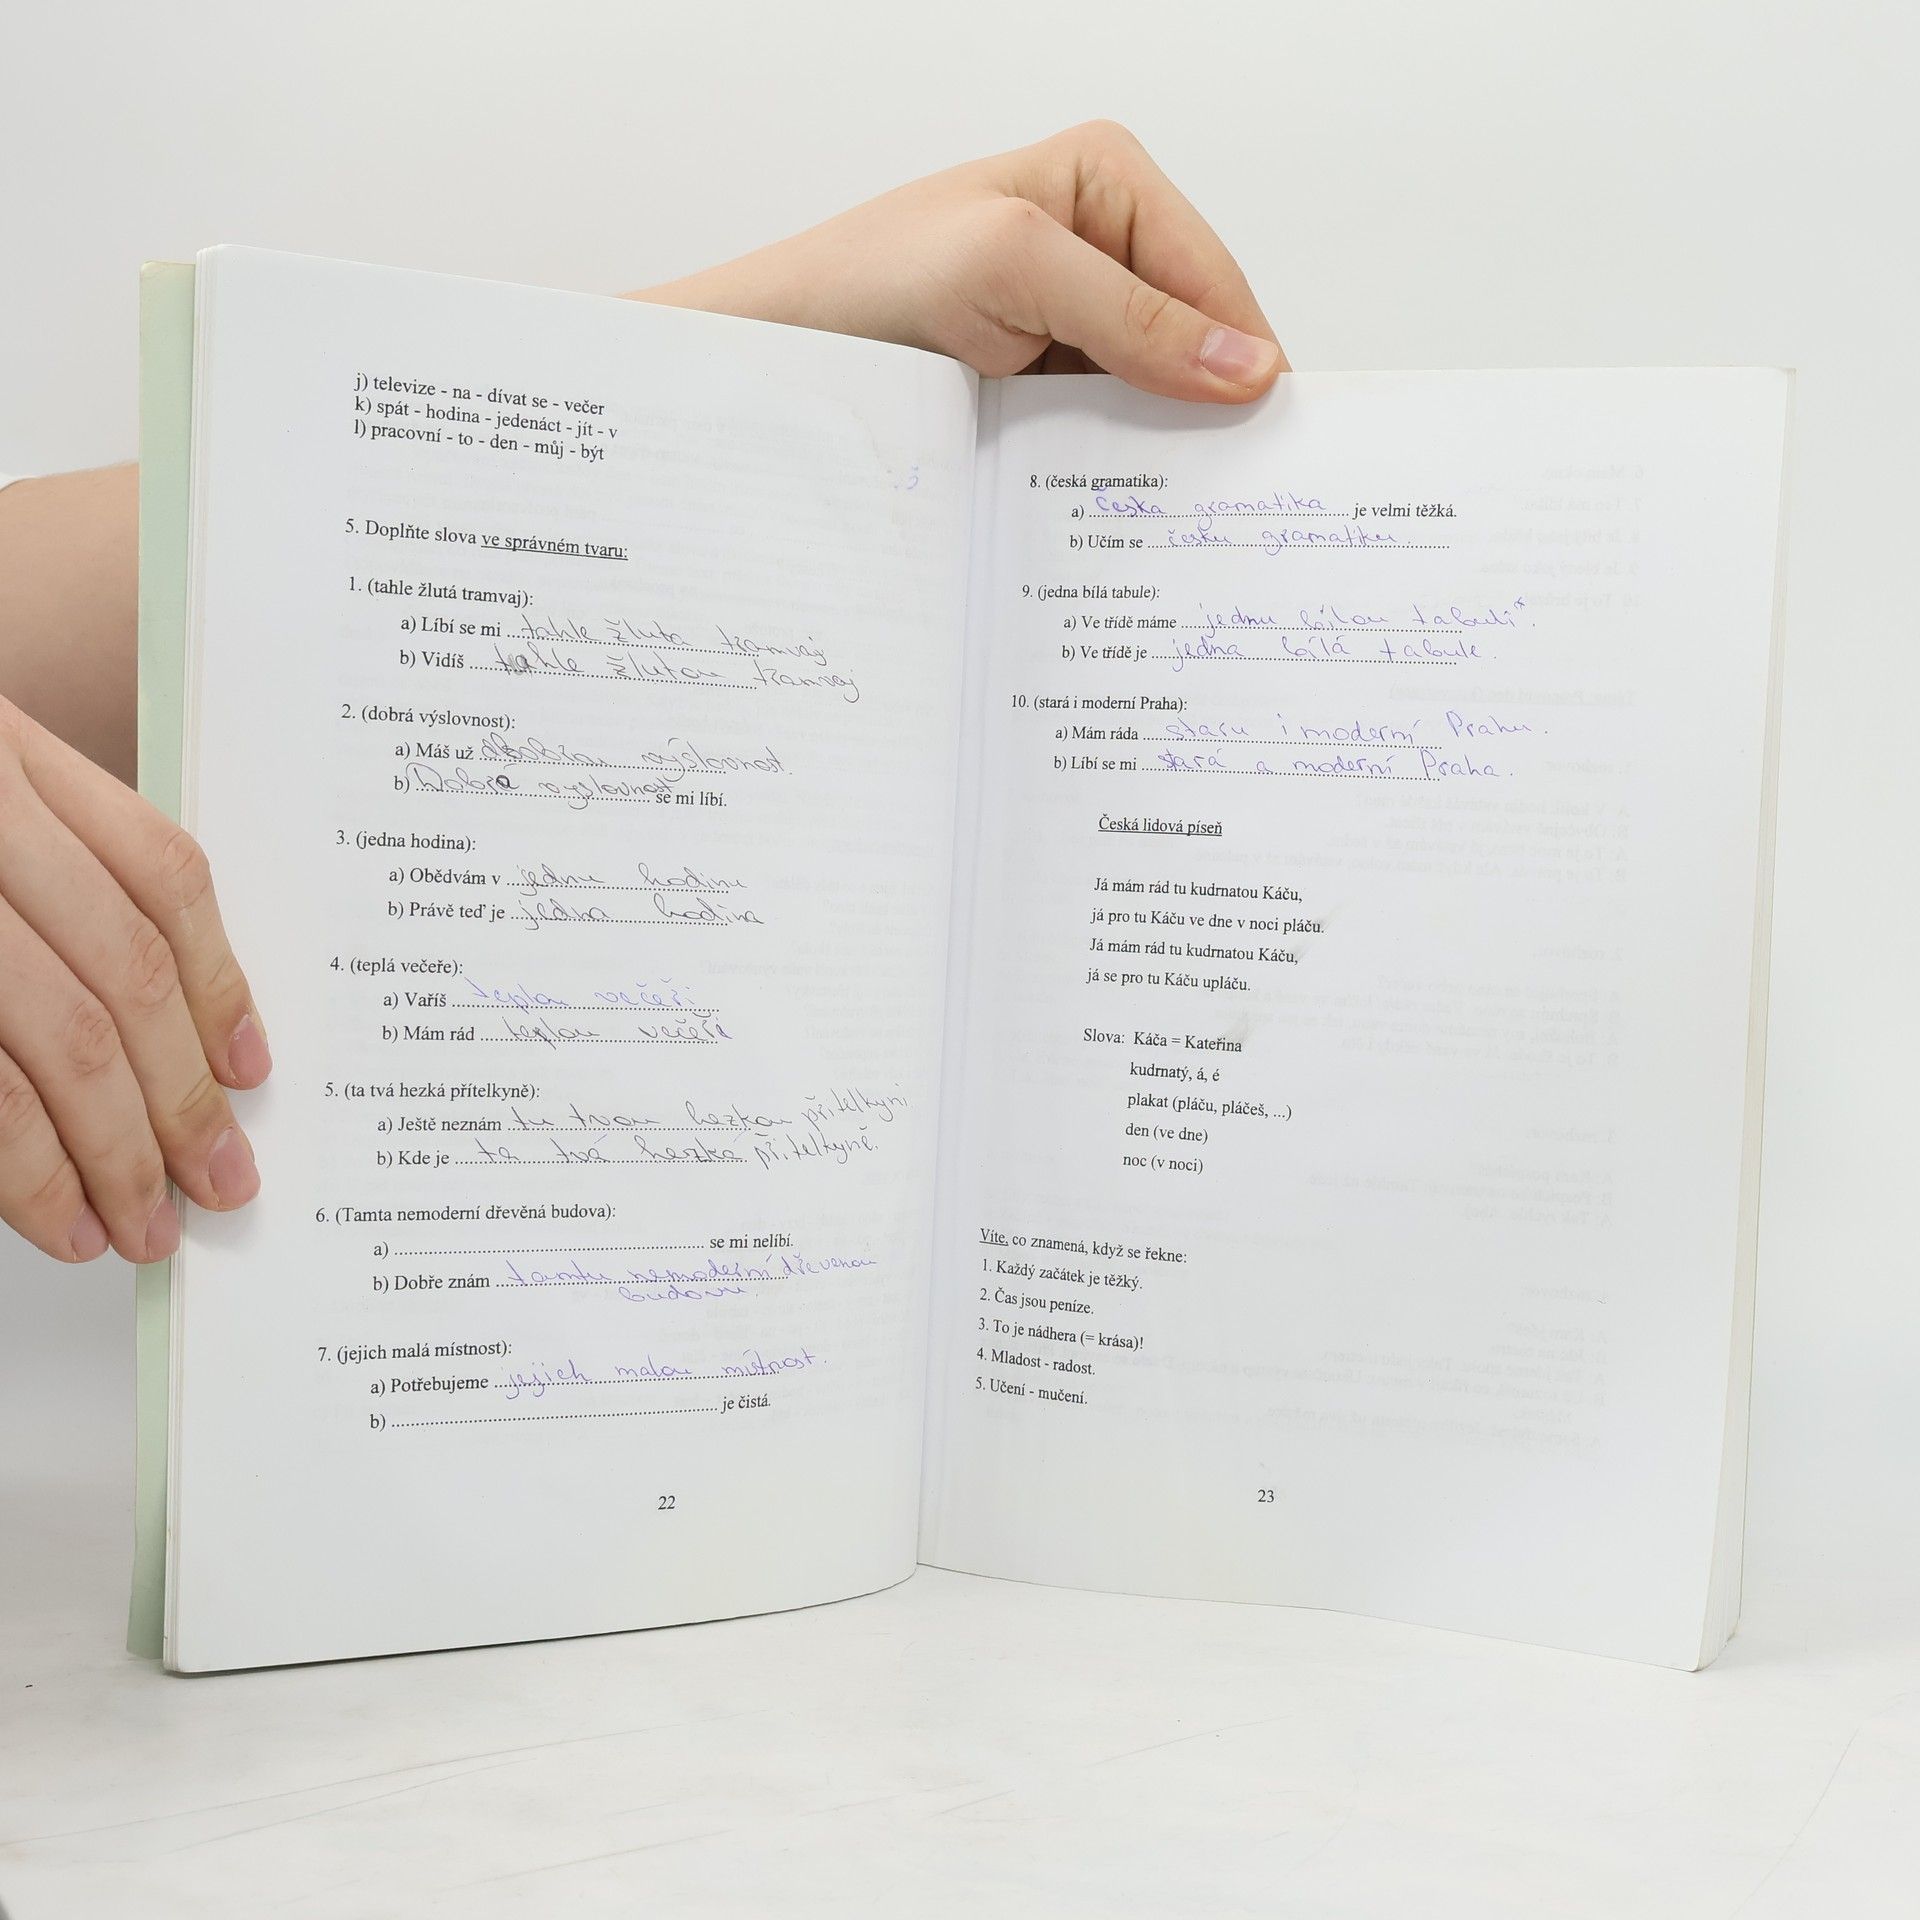 j) televize - na - dívat se - večer
k) spát - hodina - jedenáct - jít - v
l) pracovní - to - den - můj - být
5. Doplňte slova ve správném tvaru:
1. (tahle žlutá tramvaj):
a) Líbí se mi tahle žluta tramvaj
b) Vidíš tahle žlutou tramvaj
2. (dobrá výslovnost):
a) Máš už dobrou výslovnost.
b) Dobrá vyslovnost se mi líbí.
3. (jedna hodina):
a) Obědvám v jednu hodinu
b) Právě teď je jedna hodina
4. (teplá večeře):
a) Vaříš teplou večeři
b) Mám rád teplou večeři
5. (ta tvá hezká přítelkyně):
a) Ještě neznám tu tvou hezkou přitelkyni
b) Kde je ta tvá hezká přitelkyně.
6. (Tamta nemoderní dřevěná budova):
a) ........................................................ se mi nelíbí.
b) Dobře znám tamtu nemoderní dřevenou
budovu.
7. (jejich malá místnost):
a) Potřebujeme jejich malou místnost.
b) ........................................................ je čistá.
22
8. (česká gramatika):
a) Česka gramatika je velmi těžká.
b) Učím se česku gramatiku.
9. (jedna bílá tabule):
a) Ve třídě máme jednu bílou tabuli*.
b) Ve třídě je jedna bílá tabule.
10. (stará i moderní Praha):
a) Mám ráda staru i moderní Prahu.
b) Líbí se mi stará a moderní Praha.
Česká lidová píseň
Já mám rád tu kudrnatou Káču,
já pro tu Káču ve dne v noci pláču.
Já mám rád tu kudrnatou Káču,
já se pro tu Káču upláču.
Slova: Káča = Kateřina
kudrnatý, á, é
plakat (pláču, pláčeš, ...)
den (ve dne)
noc (v noci)
Víte, co znamená, když se řekne:
1. Každý začátek je těžký.
2. Čas jsou peníze.
3. To je nádhera (= krása)!
4. Mladost - radost.
5. Učení - mučení.
23